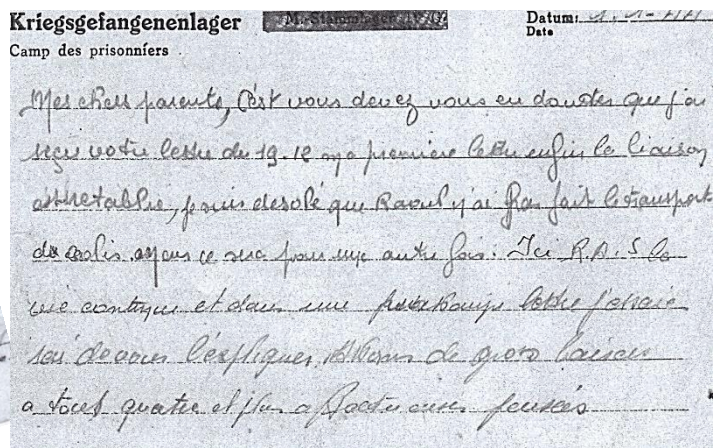 Kriegsgefangenenlager M.-Stammlager IV G. Datum: 1.1-44
Camp des prisonniers Date
Mes chers parents, C'est vous devez vous en douter que j'ai
reçu votre lettre du 19.12 ma première lettre enfin la liaison
est retablie, je suis desolé que Raoul n'ai pas fait le transport
de colis ce sera pour une autre fois. Ici R.A.S la
vie continue et dans une lettre j'essaie
rai de vous l'expliquer, de gros baisers
a tous quatre et plus affectueuses pensées